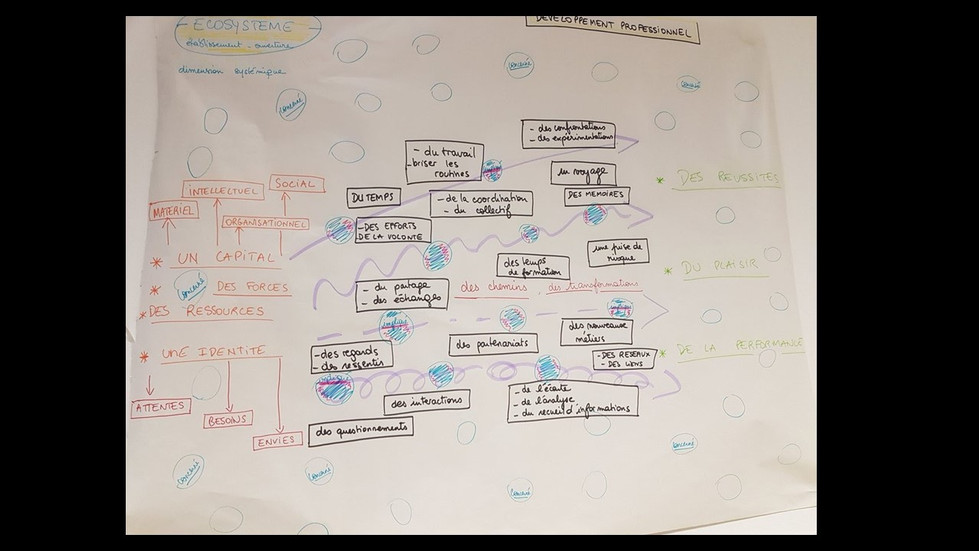 ECOSYSTEME
établissement - ouverture
dimension systémique
DEVELOPPEMENT PROFESSIONNEL
MATERIEL
INTELLECTUEL
SOCIAL
ORGANISATIONNEL
* UN CAPITAL
* DES FORCES
* DES RESSOURCES
* UNE IDENTITE
ATTENTES
BESOINS
ENVIES
- des confrontations
- des expérimentations
- du travail
- briser les
routines
un voyage
DU TEMPS
- de la coordination
- du collectif
DES MEMOIRES
- DES EFFORTS
DE LA VOLONTE
des temps
de formation
une prise de
risque
- du partage
- des échanges
des chemins, des transformations
- des regards
- des ressentis
des partenariats
des nouveaux
métiers
- DES RESEAUX
- DES LIENS
des interactions
- de l'écoute
- de l'analyse
- du recueil d'informations
des questionnements
* DES REUSSITES
* DU PLAISIR
* DE LA PERFORMANCE